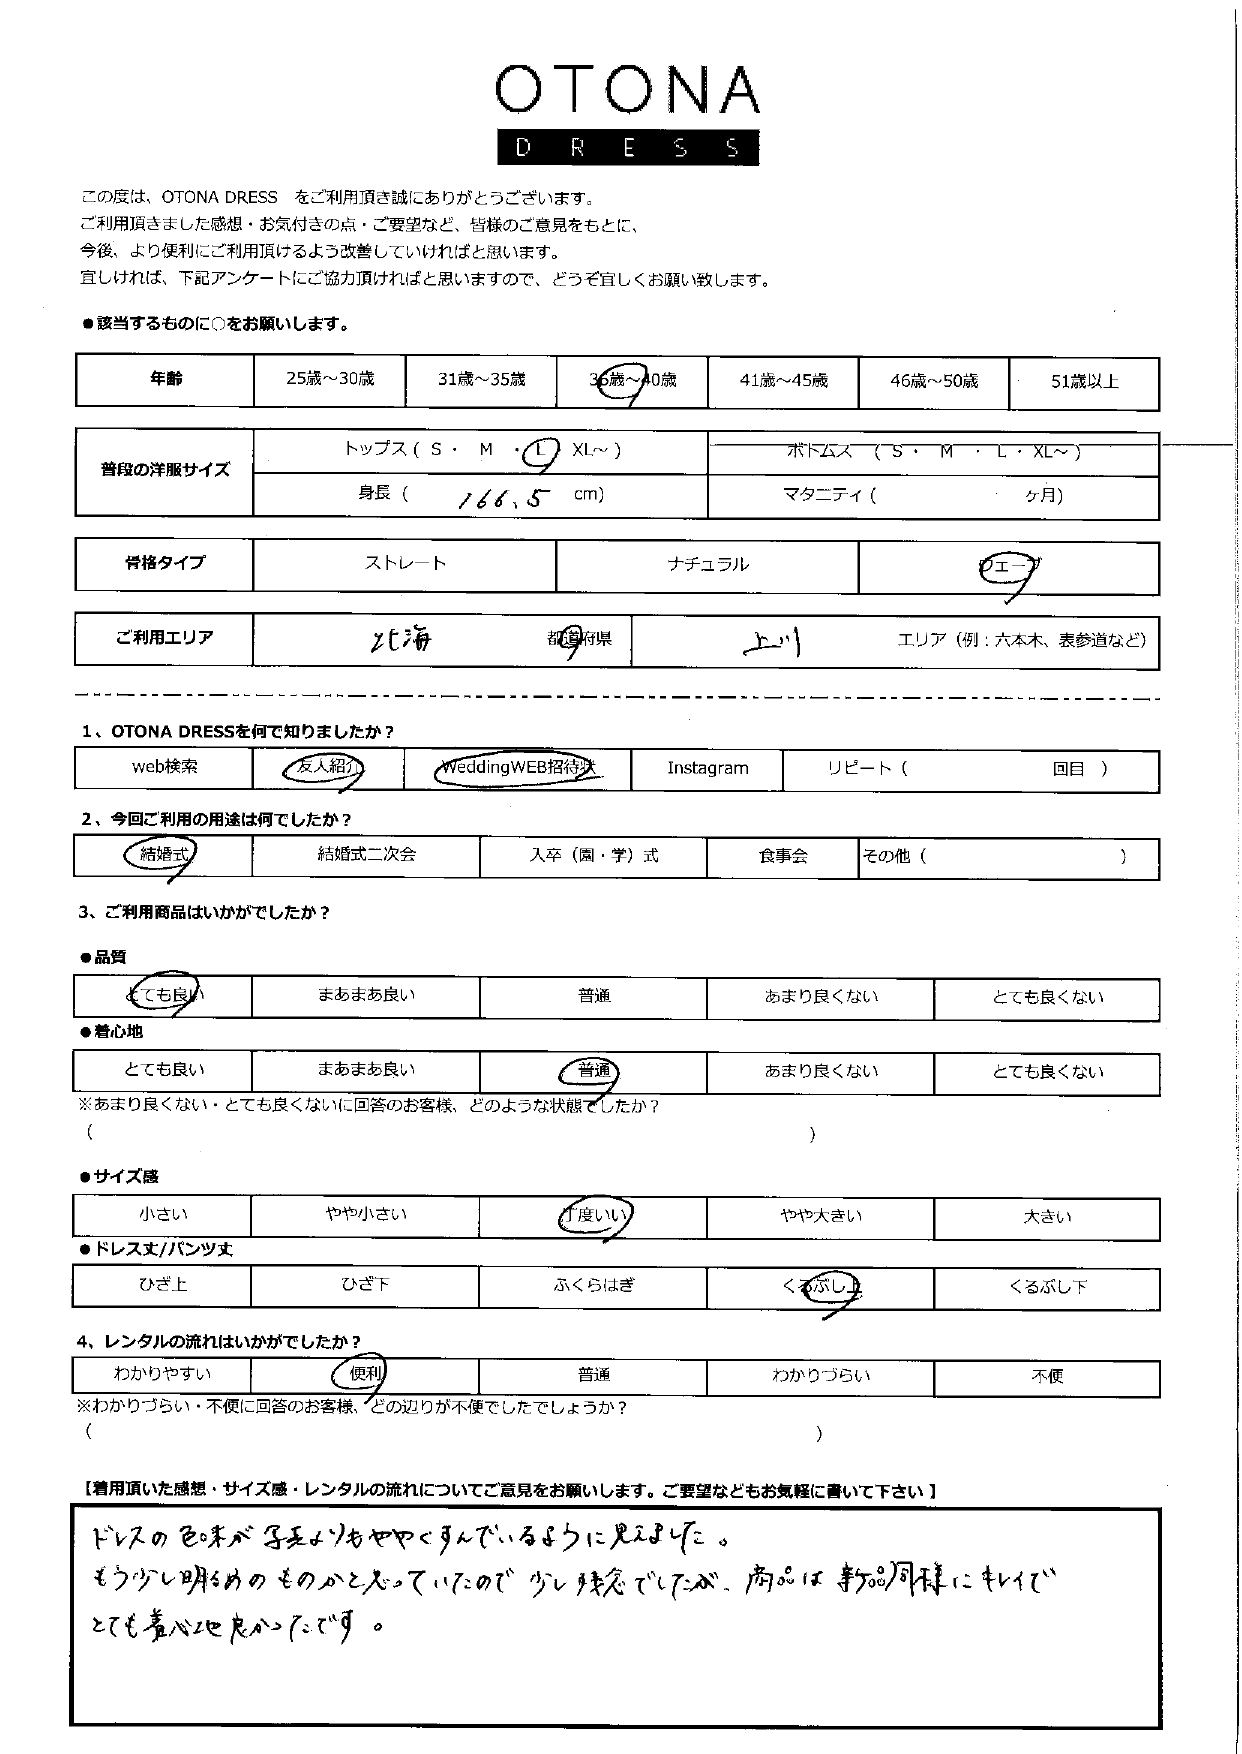 OTONA
DRESS
この度は、OTONA DRESS をご利用頂き誠にありがとうございます。
ご利用頂きました感想・お気付きの点・ご要望など、皆様のご意見をもとに、
今後、より便利にご利用頂けるよう改善していければと思います。
宜しければ、下記アンケートにご協力頂ければと思いますので、どうぞ宜しくお願い致します。
●該当するものに○をお願いします。
年齢 25歳～30歳 31歳～35歳 36歳～40歳 41歳～45歳 46歳～50歳 51歳以上
普段の洋服サイズ トップス ( S ・ M ・ L XL～ ) ボトムス ( S ・ M ・ L ・ XL～ )
身長 ( 166.5 cm) マタニティ ( ヶ月)
骨格タイプ ストレート ナチュラル ウェーブ
ご利用エリア 北海 都道府県 上川 エリア（例：六本木、表参道など）
1、OTONA DRESSを何で知りましたか？
web検索 友人紹介 WeddingWEB招待状 Instagram リピート ( 回目 )
2、今回ご利用の用途は何でしたか？
結婚式 結婚式二次会 入卒（園・学）式 食事会 その他 ( )
3、ご利用商品はいかがでしたか？
●品質
とても良い まあまあ良い 普通 あまり良くない とても良くない
●着心地
とても良い まあまあ良い 普通 あまり良くない とても良くない
※あまり良くない・とても良くないに回答のお客様、どのような状態でしたか？
( )
●サイズ感
小さい やや小さい 丁度いい やや大きい 大きい
●ドレス丈/パンツ丈
ひざ上 ひざ下 ふくらはぎ くるぶし上 くるぶし下
4、レンタルの流れはいかがでしたか？
わかりやすい 便利 普通 わかりづらい 不便
※わかりづらい・不便に回答のお客様、どの辺りが不便でしたでしょうか？
( )
【着用頂いた感想・サイズ感・レンタルの流れについてご意見をお願いします。ご要望などもお気軽に書いて下さい】
ドレスの色味が写真よりもややくすんでいるように見えました。
もう少し明るめのものかと思っていたので少し残念でしたが、商品は新品同様にキレイで
とても着心地良かったです。